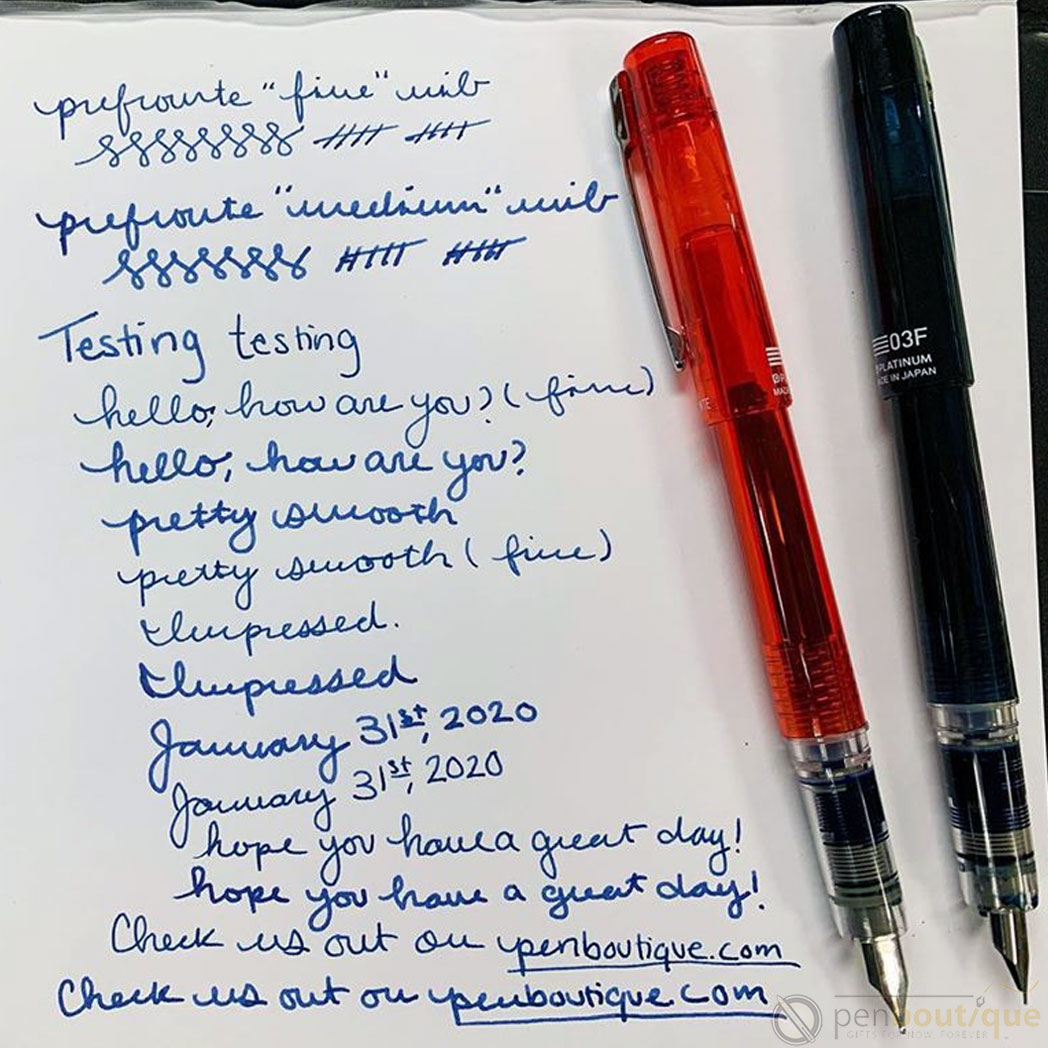 prefrounte "fine" nib
prefrounte "medium" nib
Testing testing
hello, how are you? (fine)
hello, how are you?
pretty smooth
pretty smooth (fine)
Impressed.
Impressed
January 31st, 2020
January 31st, 2020
hope you have a great day!
hope you have a great day!
Check us out on penboutique.com
Check us out on penboutique.com
03F
PLATINUM
MADE IN JAPAN
penboutique
GIFTS FOR NOW, FOREVER